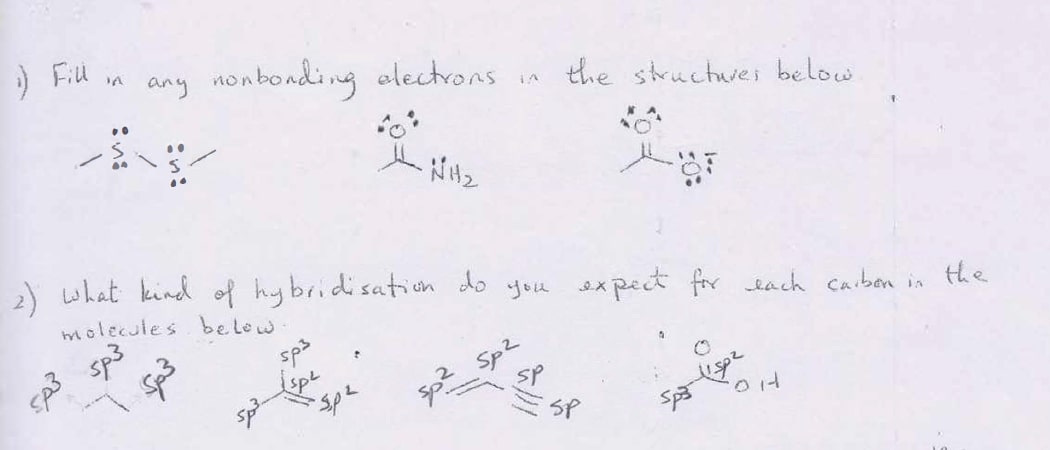 1) Fill in any nonbonding electrons in the structures below
S S O NH2 O O-
2) What kind of hybridisation do you expect for each carbon in the
molecules below.
sp3 sp3 sp3 sp3 sp3 sp2 sp2 sp2 sp2 sp sp sp3 O sp2 OH